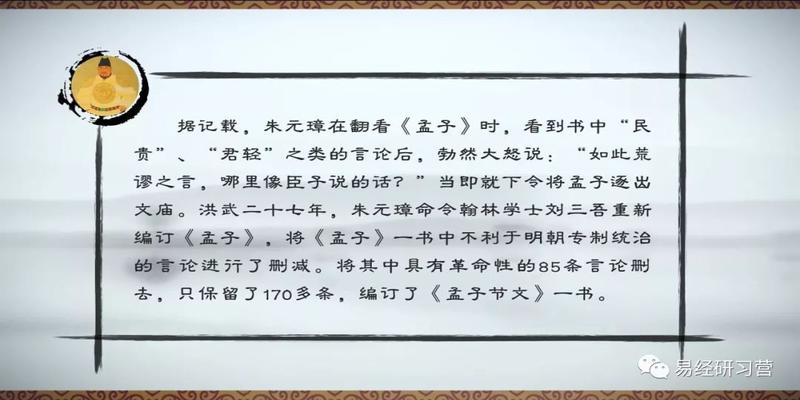 据记载，朱元璋在翻看《孟子》时，看到书中“民
贵”、“君轻”之类的言论后，勃然大怒说：“如此荒
谬之言，哪里像臣子说的话？”当即就下令将孟子逐出
文庙。洪武二十七年，朱元璋命令翰林学士刘三吾重新
编订《孟子》，将《孟子》一书中不利于明朝专制统治
的言论进行了删减。将其中具有革命性的85条言论删
去，只保留了170多条，编订了《孟子节文》一书。
易经研习营